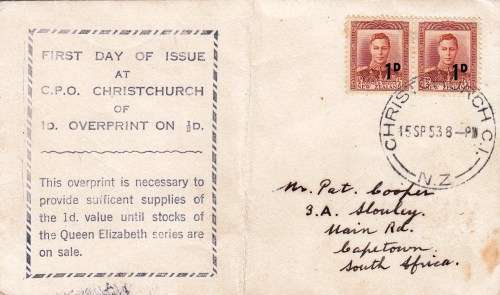 FIRST DAY OF ISSUE
AT
C.P.O. CHRISTCHURCH
OF
1D. OVERPRINT ON ½D.
This overprint is necessary to
provide sufficent supplies of
the 1d. value until stocks of
the Queen Elizabeth series are
on sale.
1D 1D
NEW ZEALAND NEW ZEALAND
CHRISTCHURCH C.1.
15 SP 53 8 – PM
N.Z.
Mr. Pat. Cooper
3.A. Slouley.
Main Rd.
Capetown.
South Africa.